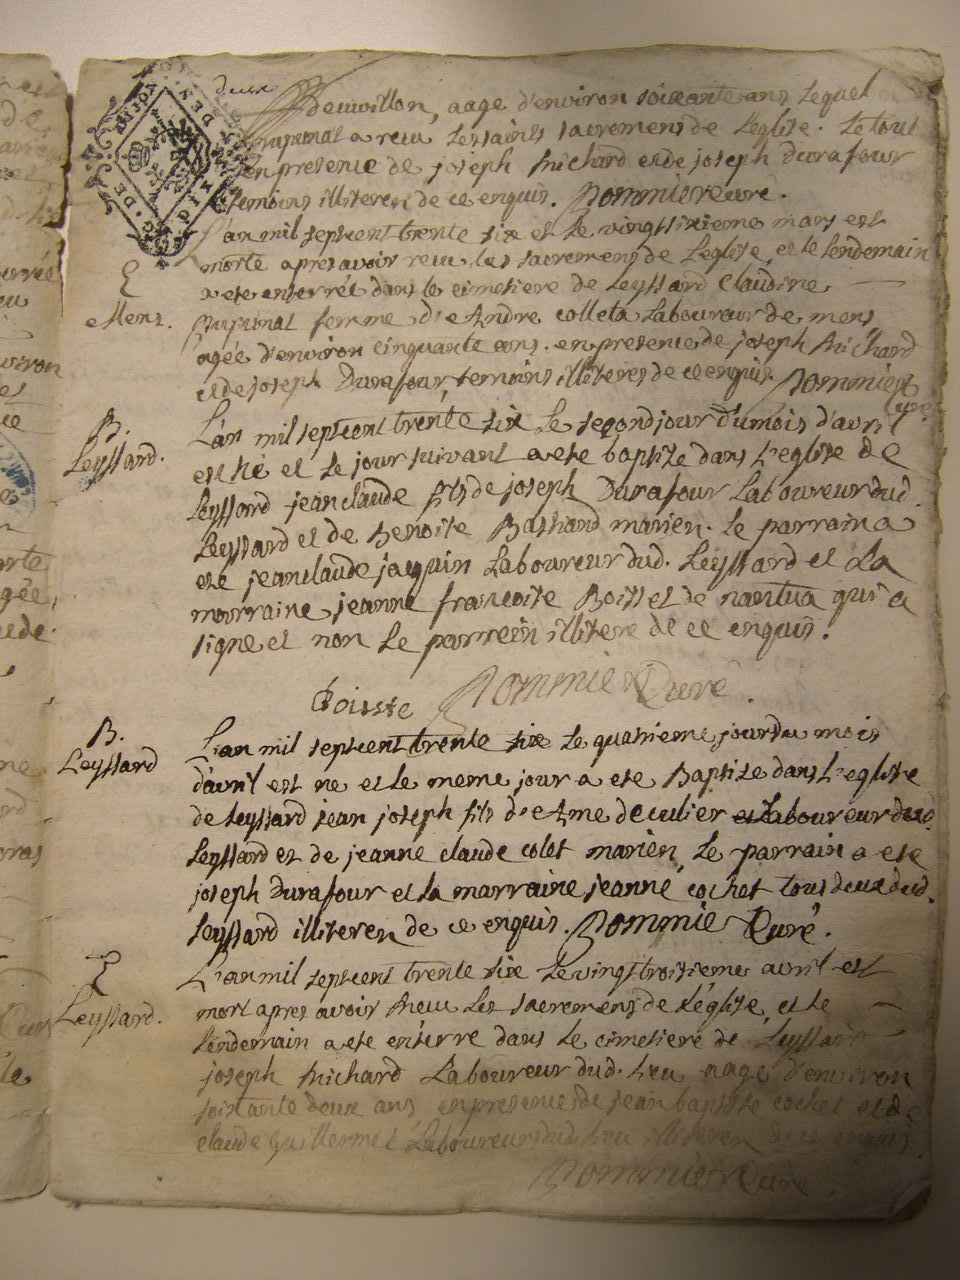 deux
devvillon, aage d'environ soixante ans lequel
a receu les saints sacremens de l'eglise. le tout
en presence de joseph Richard et de joseph Durafour
temoins illiteres de ce enquis. Pommier Curé.
L'an mil septcent trente six et le vingt sixieme mars est
morte apres avoir receu les sacremens de l'eglise, et le lendemain
a eté enterrée dans le cimetiere de Leyssard Claudine
Mens. femme d'Andre colleta Laboureur de mens
agée d'environ cinquante ans. en presence de joseph Richard
et de joseph Durafour temoins illiteres de ce enquis. Pommier
Curé
B. L'an mil septcent trente six le second jour du mois d'avril
Leyssard. est né et le jour suivant a eté baptizé dans l'eglise de
Leyssard jean claude fils de joseph Durafour Laboureur dud.
Leyssard et de Benoite Bastiand mariez. le parrain a
eté jean claude jaquin Laboureur dud. Leyssard et La
marraine jeanne francoise Boisset de nantua qui a
signé et non le parrein illitere de ce enquis.
Boisste Pommier Curé.
B. L'an mil septcent trente six le quatrieme jour du mois
Leyssard d'avril est né et le meme jour a eté Baptizé dans l'eglise
de Leyssard jean joseph fils d'Ame deculier Laboureur dud.
Leyssard et de jeanne claude colet mariez, le parrain a eté
joseph Durafour et la marraine jeanne cochet tous deux dud.
Leyssard illiteres de ce enquis. Pommier Curé.
L'an mil septcent trente six le vingt troisieme avril est
Leyssard. mort apres avoir receu les sacremens de l'église, et le
lendemain a eté enterré dans le cimetiere de Leyssard
joseph Richard Laboureur dud. lieu aagé d'environ
soixante deux ans en presence de jean baptiste cochet et de
claude Guillermet Laboureur dud. lieu illiteres de ce enquis
Pommier Curé